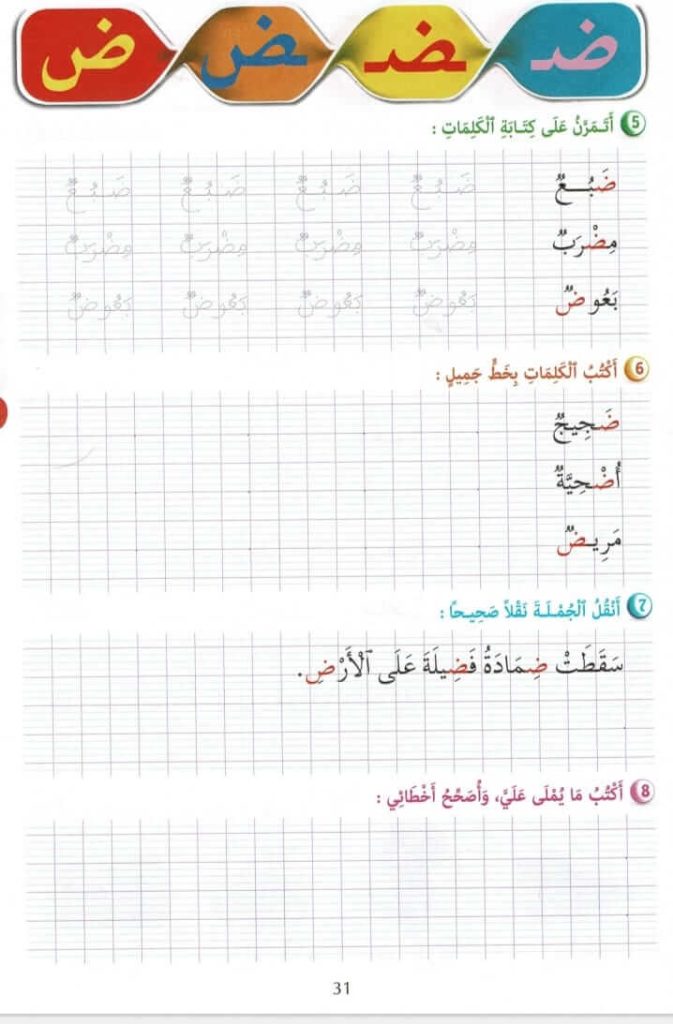 ضـ ـضـ ـض ض
5 أَتَـمَرَّنُ عَلَى كِتَـابَةِ ٱلْكَلِمَاتِ :
ضَبُـعٌ ضَبُعٌ ضَبُعٌ ضَبُعٌ ضَبُعٌ
مِضْرَبٌ مِضْرَبٌ مِضْرَبٌ مِضْرَبٌ مِضْرَبٌ
بَعُوضٌ بَعُوضٌ بَعُوضٌ بَعُوضٌ بَعُوضٌ
6 أَكْتُبُ ٱلْكَلِمَاتِ بِخَطٍّ جَمِيلٍ :
ضَجِيجٌ
أُضْحِيَّةٌ
مَرِيـضٌ
7 أَنْقُلُ ٱلْجُمْـلَـةَ نَقْلاً صَحِيـحاً :
سَقَطَتْ ضِمَادَةُ فَضِيلَةَ عَلَى ٱلْأَرْضِ.
8 أَكْتُبُ مَا يُمْلَى عَلَيَّ، وَأُصَحِّحُ أَخْطَائِي :
31